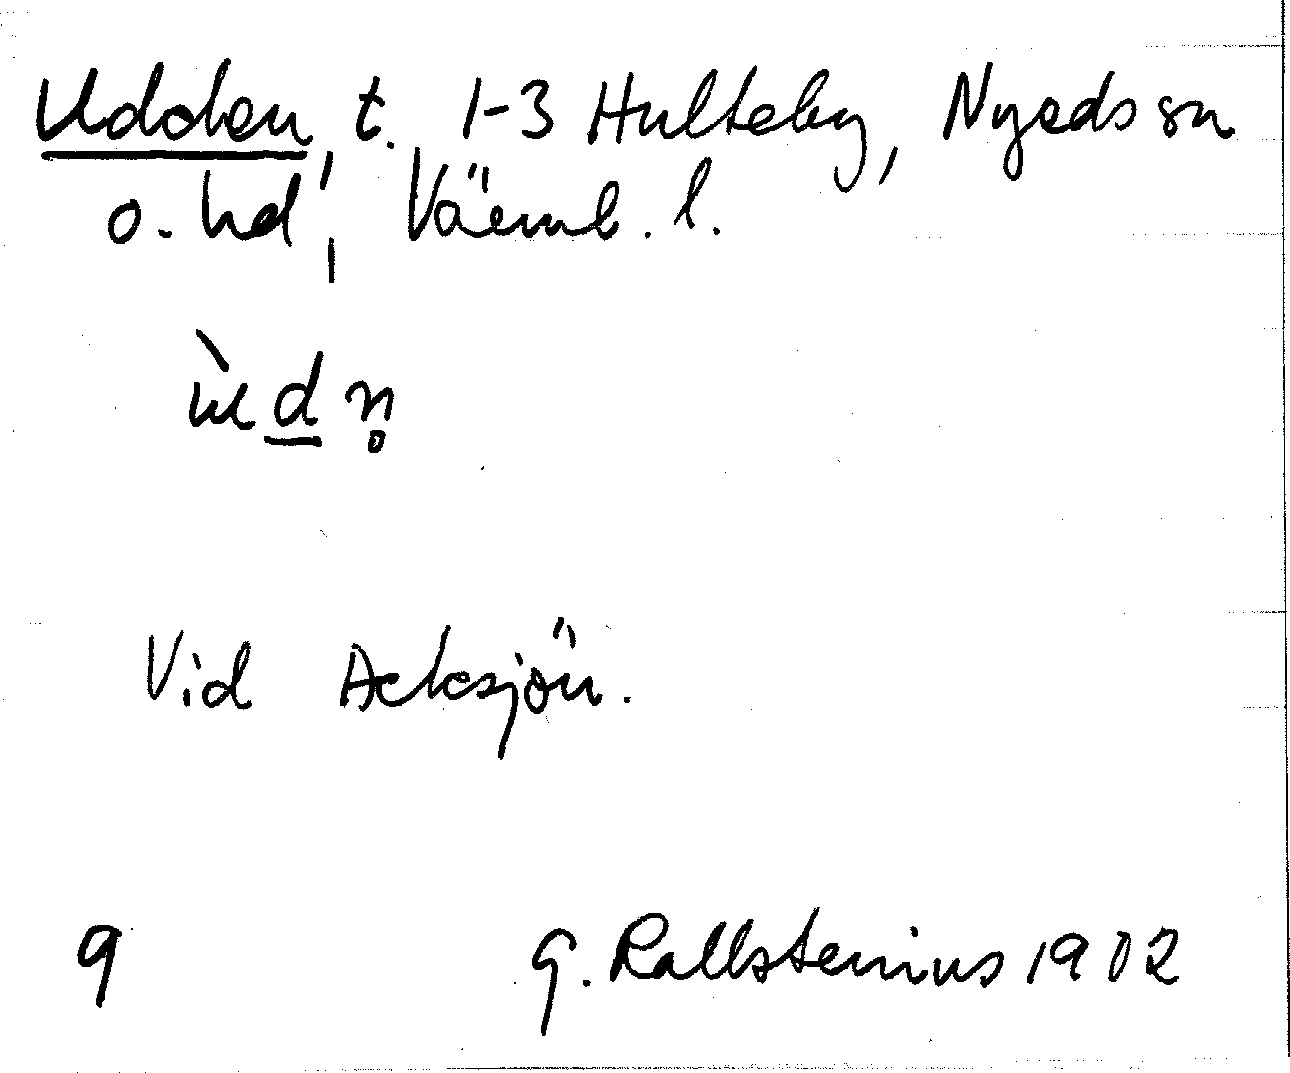 Udden, t. 1-3 Hulteby, Nyeds sn
o. hd, Värml. l.
Vid Acksjön.
9 G. Kallstenius 1902